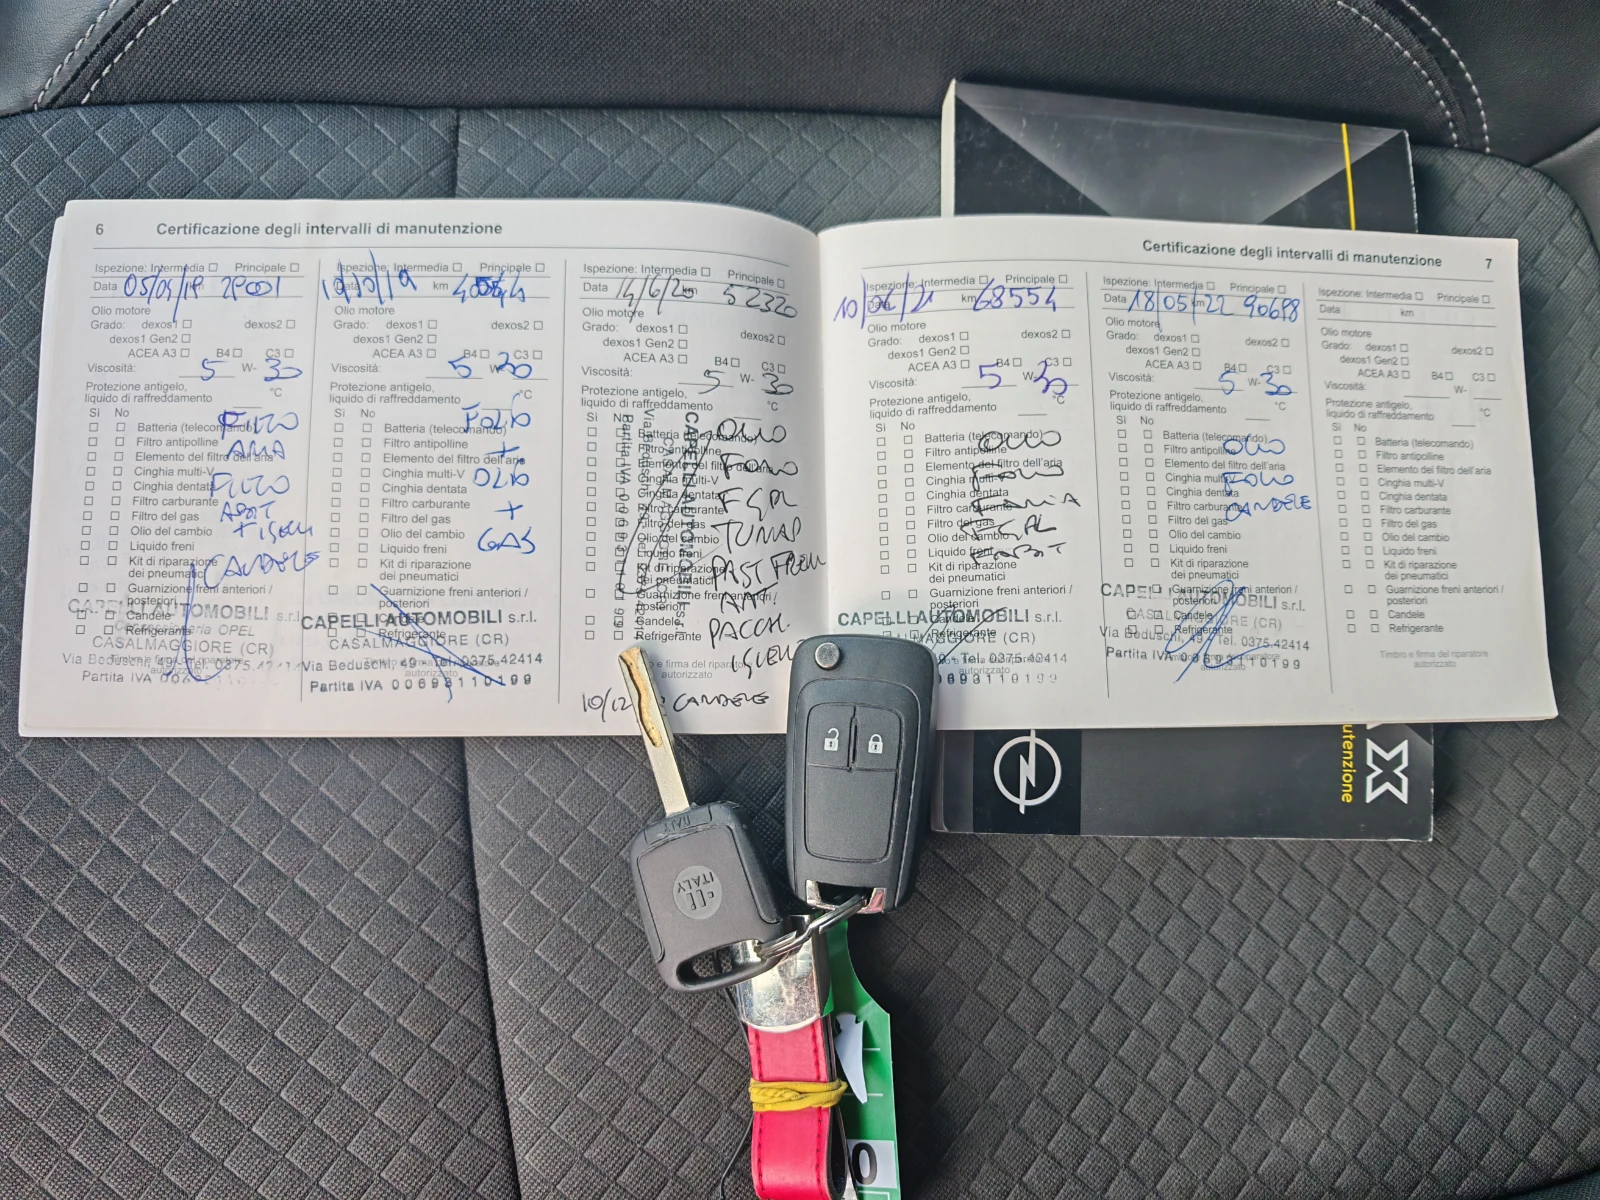 6 Certificazione degli intervalli di manutenzione
Ispezione: Intermedia Principale
Data 05/04/19 29001
Olio motore
Grado: dexos1 dexos2
dexos1 Gen2
ACEA A3 B4 C3
Viscosità: 5 W- 30
Protezione antigelo,
liquido di raffreddamento °C
Sì No
Batteria (telecomando)
Filtro antipolline
Elemento del filtro dell'aria
Cinghia multi-V
Cinghia dentata
Filtro carburante
Filtro del gas
Olio del cambio
Liquido freni
Kit di riparazione
dei pneumatici
Guarnizione freni anteriori /
posteriori
Candele
Refrigerante
CANDELE
CAPELLI AUTOMOBILI s.r.l.
CASALMAGGIORE (CR)
Via Beduschi, 49 Tel. 0375.42414
Partita IVA
Ispezione: Intermedia Principale
Data km
Olio motore
Grado: dexos1 dexos2
dexos1 Gen2
ACEA A3 B4 C3
Viscosità: 5 W 30
Protezione antigelo,
liquido di raffreddamento °C
Sì No
Batteria (telecomando)
Filtro antipolline
Elemento del filtro dell'aria
Cinghia multi-V
Cinghia dentata
Filtro carburante
Filtro del gas
Olio del cambio
Liquido freni
Kit di riparazione
dei pneumatici
Guarnizione freni anteriori /
posteriori
Refrigerante
FOLIO
+
OLIO
+
GAS
CAPELLI AUTOMOBILI s.r.l.
CASALMAGGIORE (CR)
Via Beduschi, 49 - Tel. 0375.42414
Partita IVA 00693110199
Ispezione: Intermedia Principale
Data 14/6/20 km 52320
Olio motore
Grado: dexos1 dexos2
dexos1 Gen2
ACEA A3 B4 C3
Viscosità: 5 W- 30
Protezione antigelo,
liquido di raffreddamento °C
Sì No
Batteria (telecomando)
Filtro antipolline
Elemento del filtro dell'aria
Cinghia multi-V
Cinghia dentata
Filtro carburante
Filtro del gas
Olio del cambio
Liquido freni
Kit di riparazione
dei pneumatici
Guarnizione freni anteriori /
posteriori
Candele
Refrigerante
OLIO
FOLIO
PAST FRENI
ANT
PACCH.
CAPELLI AUTOMOBILI s.r.l.
e firma del riparatore
autorizzato
10/12 CANDELE
Certificazione degli intervalli di manutenzione 7
Ispezione: Intermedia Principale
10/06/21 km 68554
Olio motore
Grado: dexos1 dexos2
dexos1 Gen2
ACEA A3 B4 C3
Viscosità: 5 W 30
Protezione antigelo,
liquido di raffreddamento °C
Sì No
Batteria (telecomando)
Filtro antipolline
Elemento del filtro dell'aria
Cinghia multi-V
Cinghia dentata
Filtro carburante
Filtro del gas
Olio del cambio
Liquido freni
Kit di riparazione
dei pneumatici
Guarnizione freni anteriori /
posteriori
Candele
Refrigerante
OLIO
FOLIO
CAPELLI AUTOMOBILI s.r.l.
CASALMAGGIORE (CR)
49 Tel. 0375.42414
Ispezione: Intermedia Principale
Data 18/05/22 90698
Olio motore
Grado: dexos1 dexos2
dexos1 Gen2
ACEA A3 B4 C3
Viscosità: 5 W- 30
Protezione antigelo,
liquido di raffreddamento °C
Sì No
Batteria (telecomando)
Filtro antipolline
Elemento del filtro dell'aria
Cinghia multi-V
Cinghia dentata
Filtro carburante
Filtro del gas
Olio del cambio
Liquido freni
Kit di riparazione
dei pneumatici
Guarnizione freni anteriori /
posteriori
Candele
Refrigerante
OLIO
FOLIO
CANDELE
CAPELLI AUTOMOBILI s.r.l.
CASALMAGGIORE (CR)
Via Beduschi, 49 Tel. 0375.42414
Partita IVA 00693110199
Ispezione: Intermedia Principale
Data km
Olio motore
Grado: dexos1 dexos2
dexos1 Gen2
ACEA A3 B4 C3
Viscosità: W-
Protezione antigelo,
liquido di raffreddamento °C
Sì No
Batteria (telecomando)
Filtro antipolline
Elemento del filtro dell'aria
Cinghia multi-V
Cinghia dentata
Filtro carburante
Filtro del gas
Olio del cambio
Liquido freni
Kit di riparazione
dei pneumatici
Guarnizione freni anteriori /
posteriori
Candele
Refrigerante
Timbro e firma del riparatore
autorizzato
ITALY
0